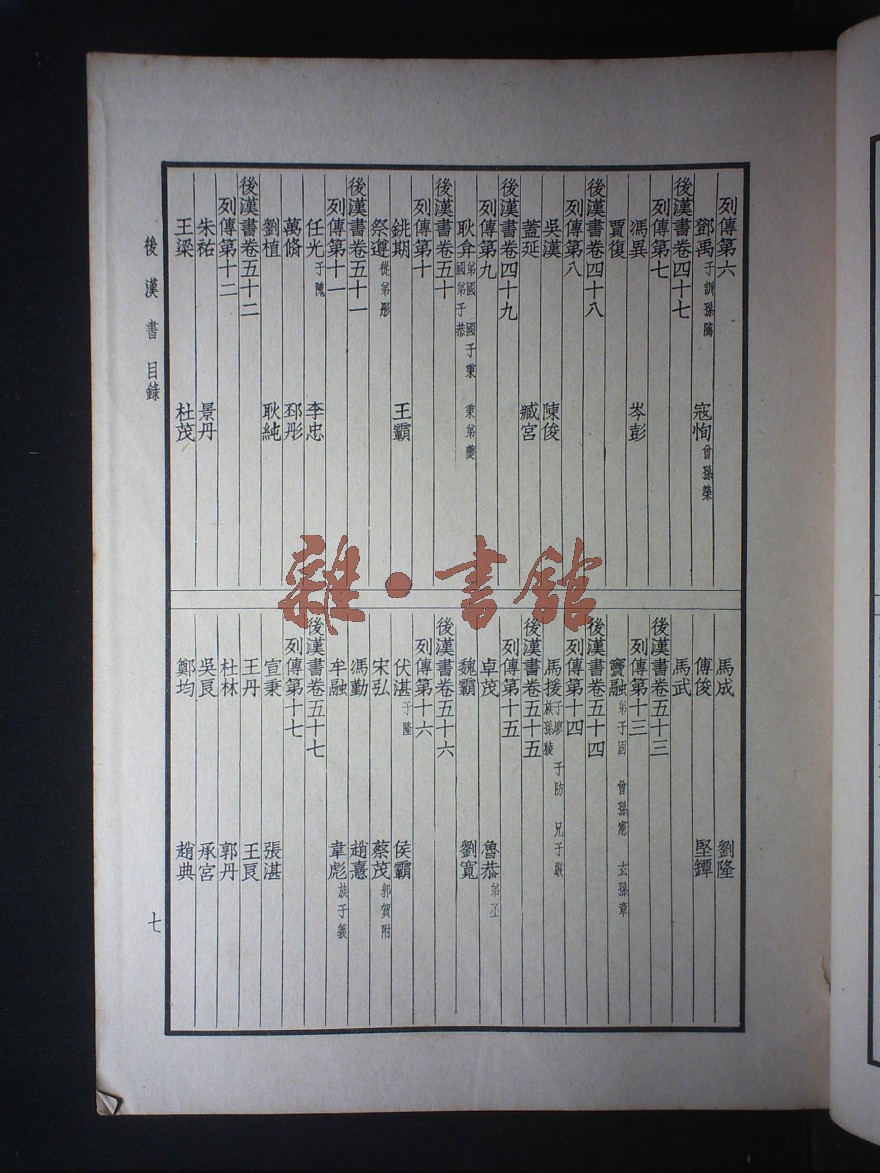 列傳第六
鄧禹子訓孫騭 寇恂曾孫榮
後漢書卷四十七
列傳第七
馮異 岑彭
賈復
後漢書卷四十八
列傳第八
吳漢 陳俊
蓋延 臧宮
後漢書卷四十九
列傳第九
耿弇弟國 國子秉 秉弟夔 國弟子恭
後漢書卷五十
列傳第十
銚期 王霸
祭遵從弟肜
後漢書卷五十一
列傳第十一
任光子隗 李忠
萬脩 邳彤
劉植 耿純
後漢書卷五十二
列傳第十二
朱祐 景丹
王梁 杜茂
馬成 劉隆
傅俊 堅鐔
馬武
後漢書卷五十三
列傳第十三
竇融弟子固 曾孫憲 玄孫章
後漢書卷五十四
列傳第十四
馬援子廖 子防 兄子嚴 族孫稜
後漢書卷五十五
列傳第十五
卓茂 魯恭弟丕
魏霸 劉寬
後漢書卷五十六
列傳第十六
伏湛子隆 侯霸
宋弘 蔡茂郭賀附
馮勤 趙憙
牟融 韋彪族子義
後漢書卷五十七
列傳第十七
宣秉 張湛
王丹 王良
杜林 郭丹
吳良 承宮
鄭均 趙典
後漢書 目錄
七
雜·書館